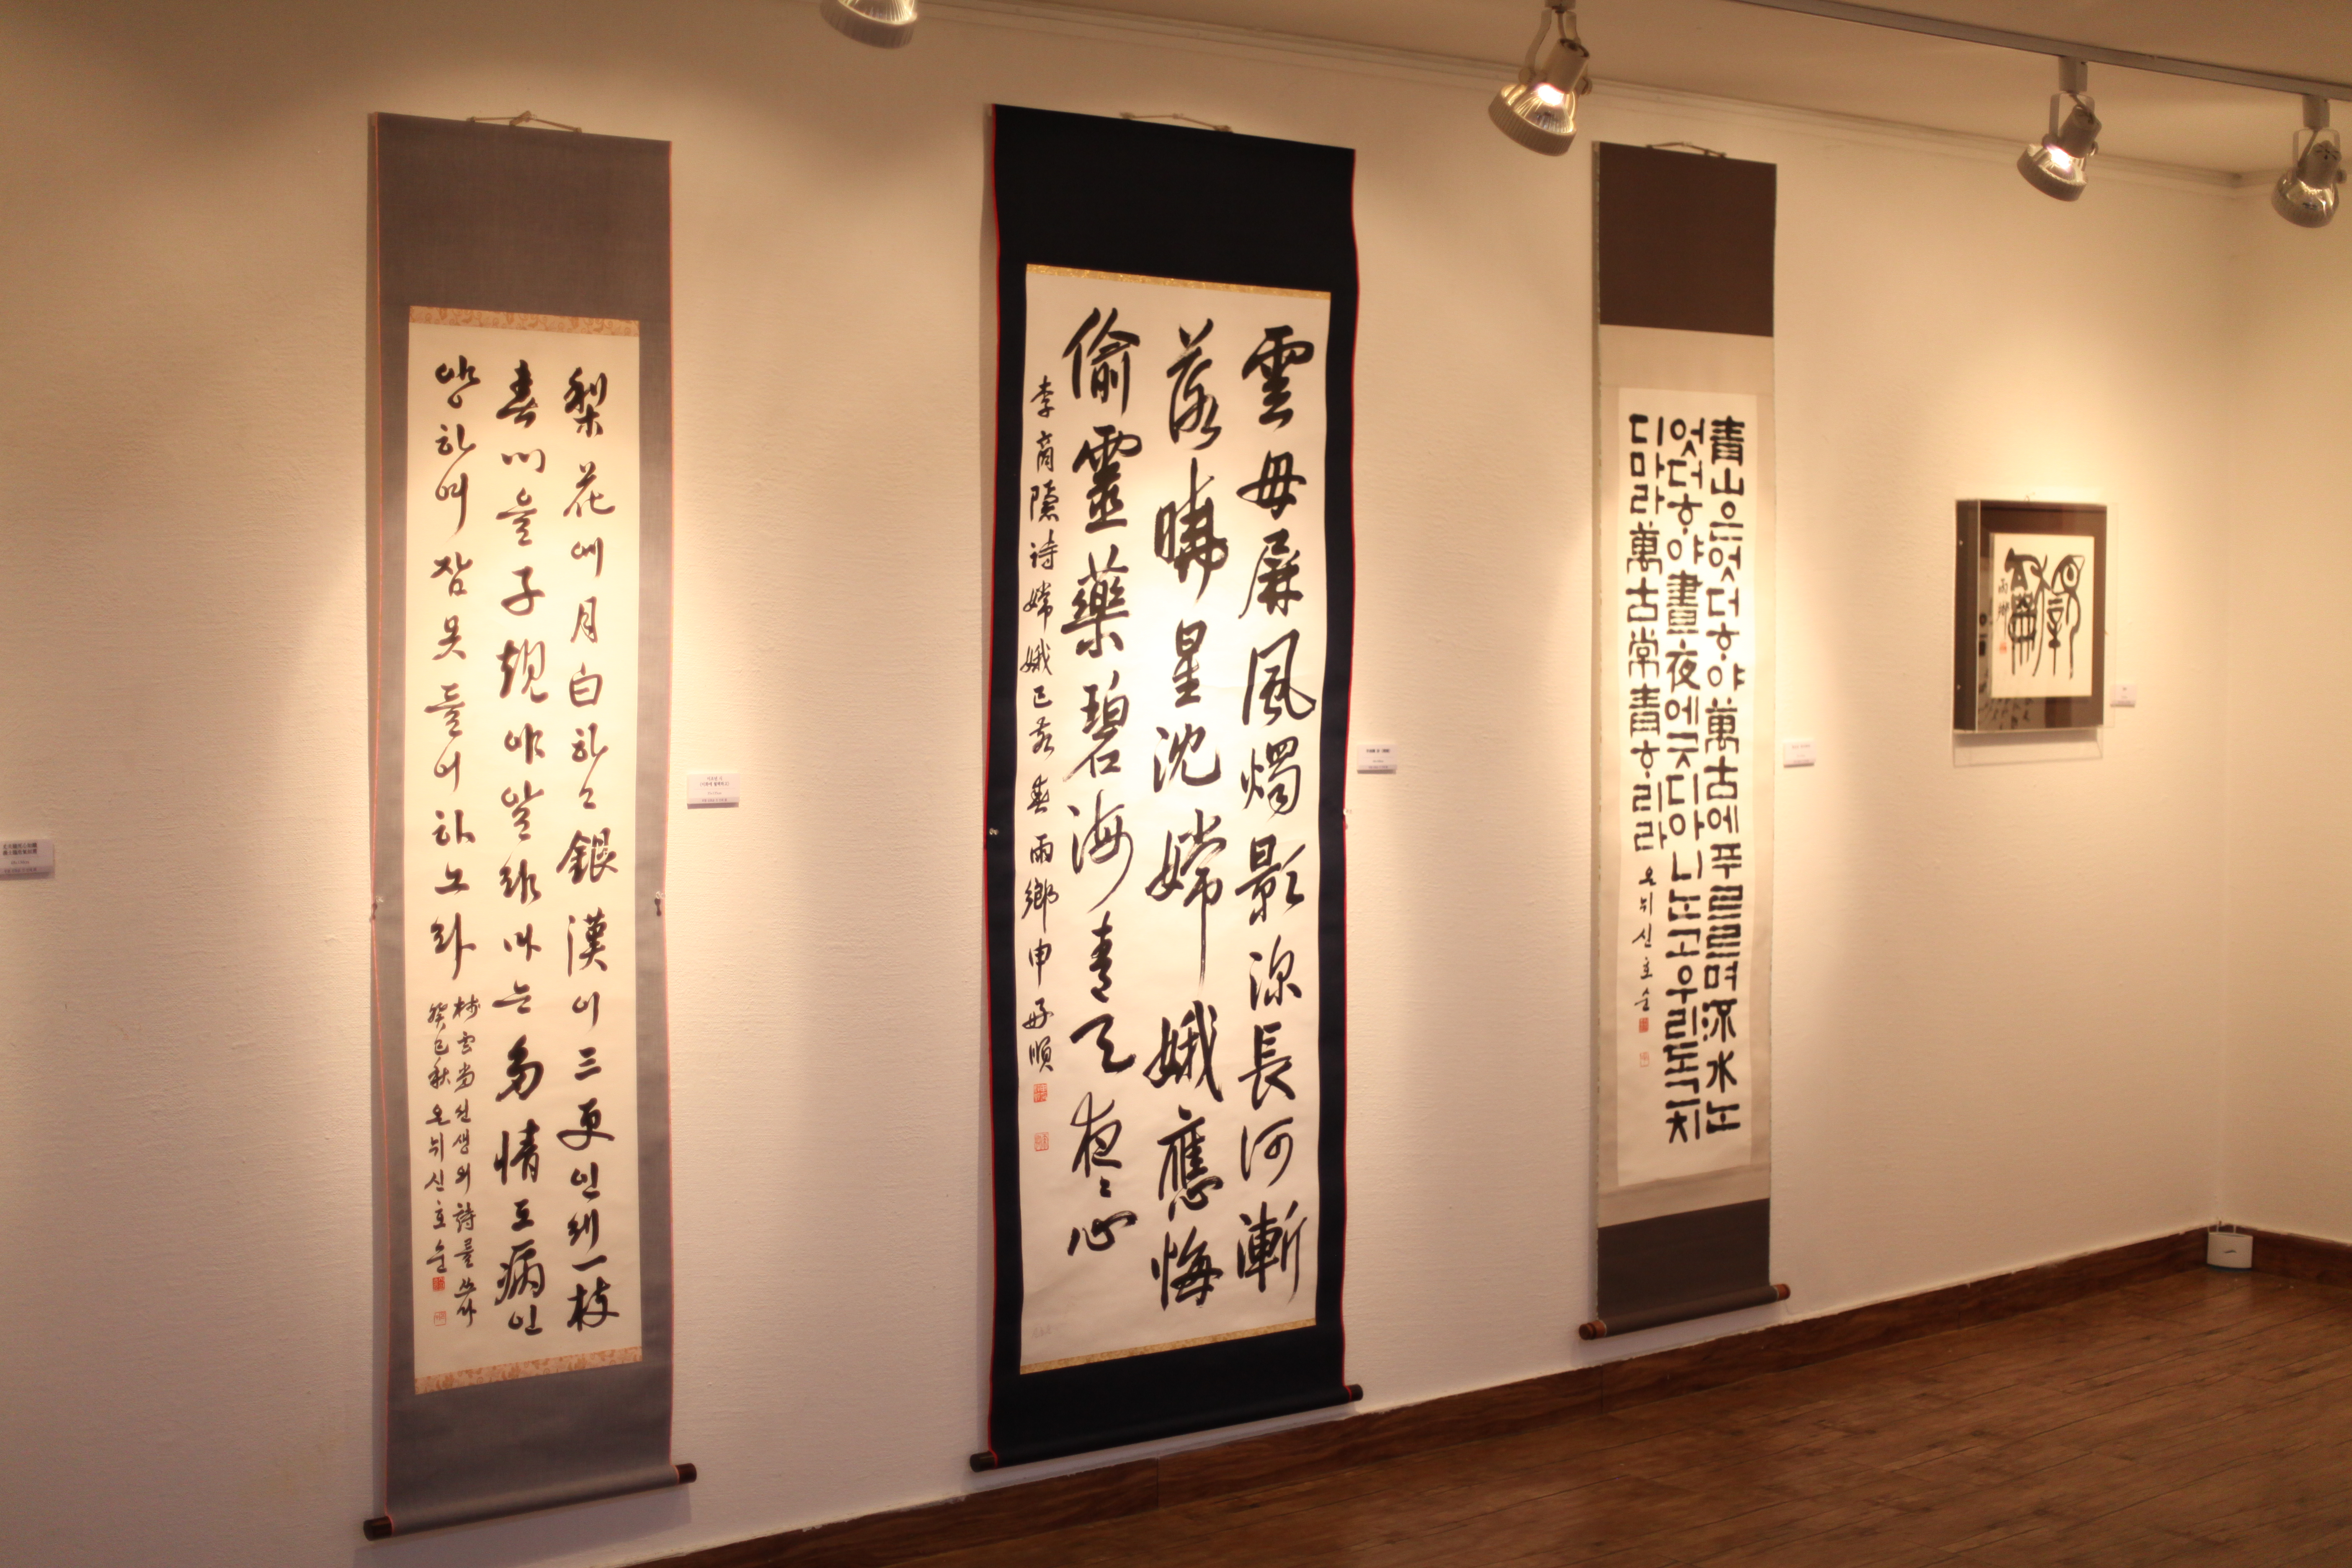 梨花에月白하고銀漢이三更인제一枝
春心을子規야알랴마는多情도病인
양하여잠못들어하노라
梅雲堂선생의詩를쓰다
癸巳秋 온뉘신호순
雲母屏風燭影深長河漸
落曉星沈嫦娥應悔
偷靈藥碧海青天夜々心
李商隱詩嫦娥 春 雨鄉申好順
青山은엇더ᄒᆞ야萬古에푸르르며流水ᄂᆞᆫ
엇더ᄒᆞ야晝夜에긋디아니ᄂᆞᆫ고우리도그치
디마라萬古常青ᄒᆞ리라
온뉘신호순